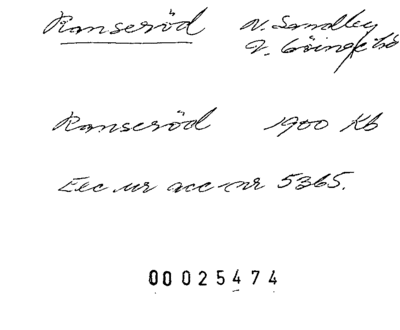 Ranseröd N. Sandby
V. Göinge hd
Ranseröd 1900 Kb
Exc. ur acc-nr 5365.
00025474